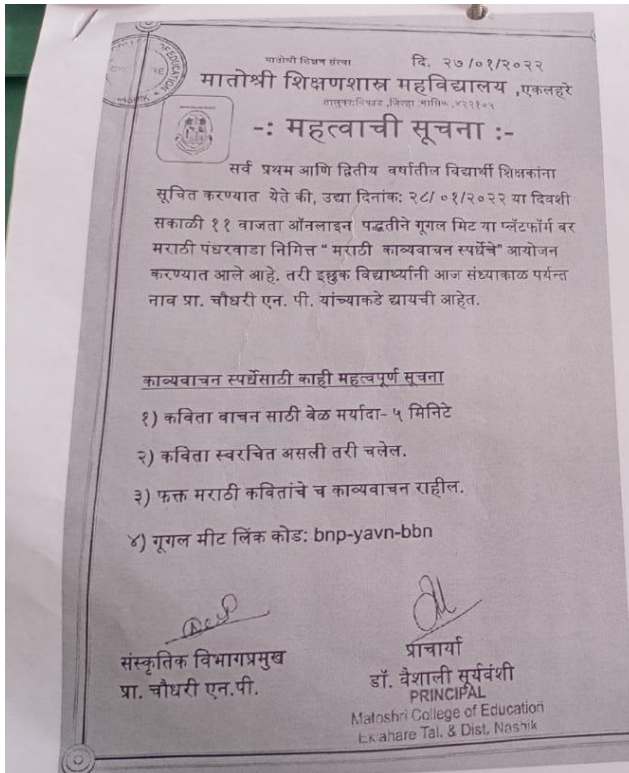 OF EDUCATION
NASHIK
मातोश्री शिक्षण संस्था
दि. २७/०१/२०२२
मातोश्री शिक्षणशास्त्र महविद्यालय ,एकलहरे
-: महत्वाची सूचना :-
सर्व प्रथम आणि द्वितीय वर्षातील विद्यार्थी शिक्षकांना
सूचित करण्यात येते की, उद्या दिनांक: २८/ ०१/२०२२ या दिवशी
सकाळी ११ वाजता ऑनलाइन पद्धतीने गूगल मिट या प्लॅटफॉर्म वर
मराठी पंधरवाडा निमित्त " मराठी काव्यवाचन स्पर्धेचे" आयोजन
करण्यात आले आहे. तरी इछुक विद्यार्थ्यांनी आज संध्याकाळ पर्यन्त
नाव प्रा. चौधरी एन. पी. यांच्याकडे द्यायची आहेत.
काव्यवाचन स्पर्धेसाठी काही महत्वपूर्ण सूचना
१) कविता वाचन साठी वेळ मर्यादा- ५ मिनिटे
२) कविता स्वरचित असली तरी चलेल.
३) फक्त मराठी कवितांचे च काव्यवाचन राहील.
४) गूगल मीट लिंक कोड: bnp-yavn-bbn
संस्कृतिक विभागप्रमुख
प्रा. चौधरी एन.पी.
प्राचार्या
डॉ. वैशाली सूर्यवंशी
PRINCIPAL
Matoshri College of Education
Eklahare Tal. & Dist. Nashik